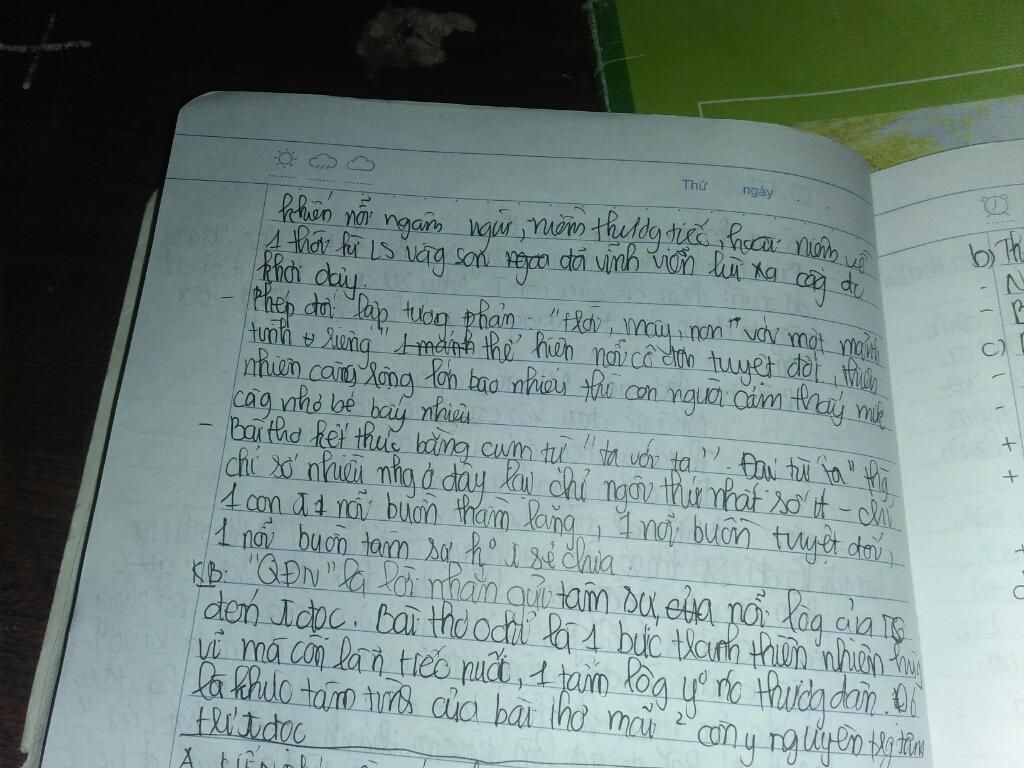 Thứ ngày
khiến nỗi ngậm ngùi, niềm thương tiếc, hoài niệm về
1 thời kì LS vàg son đã vĩnh viễn lùi xa càg đc
khơi dậy.
- Phép đối lập tương phản "trời, mây, non" với một mảnh
tình riêng" 1 mảnh thể hiện nỗi cô đơn tuyệt đối, thiên
nhiên càng rộng lớn bao nhiêu thì con người cảm thấy mình
càg nhỏ bé bấy nhiêu
- Bài thơ kết thúc bằng cụm từ "ta với ta". Đại từ "ta" thg
chỉ số nhiều nhg ở đây lại chỉ ngôi thứ nhất số ít - chỉ
1 con 1 nỗi buồn thầm lặng, 1 nỗi buồn tuyệt đối,
1 nỗi buồn tâm sự ko sẻ chia
KB: "QĐN" là lời nhắn gửi tâm sự, của nỗi lòg của TG
đến đọc. Bài thơ chỉ là 1 bức tranh thiên nhiên
vĩ mà còn là tiếc nuối, 1 tấm lòg yo nc thươg dân. Đó
là khúc tâm tình của bài thơ mãi 2 còn y nguyên trg tâm
trí đọc
A.
b)
-
-
c)
-
-
+
+